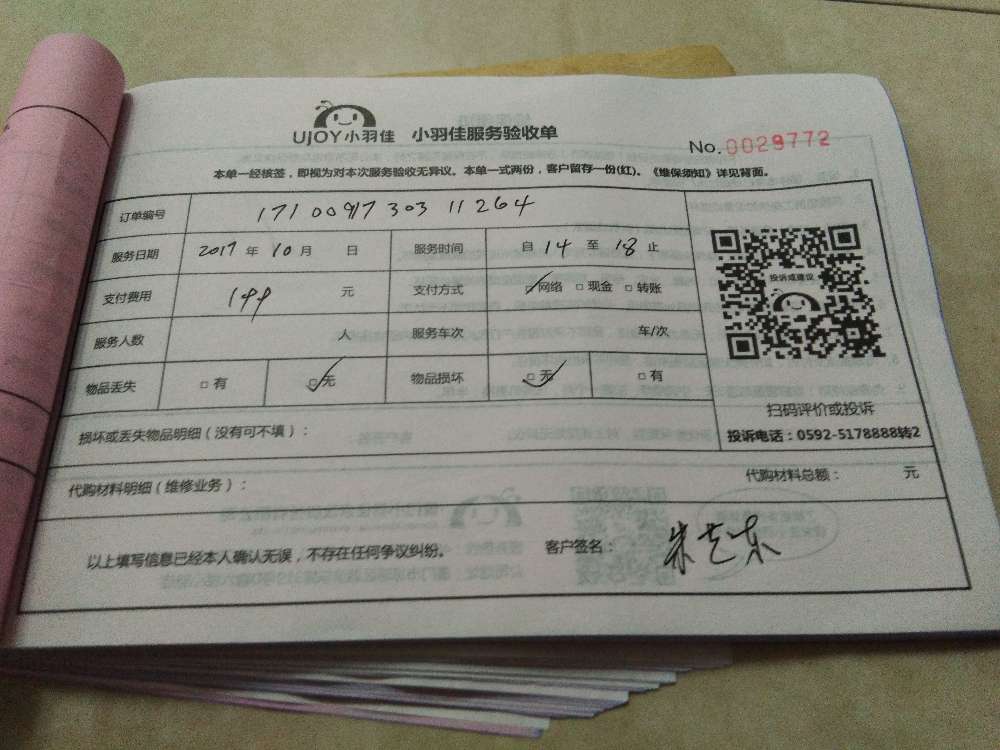 UJOY小羽佳 小羽佳服务验收单
No.0029772
本单一经核签，即视为对本次服务验收无异议。本单一式两份，客户留存一份(红)。《维保须知》详见背面。
订单编号 17100917303 11264
服务日期 2017 年 10 月 日 服务时间 自 14 至 18 止
支付费用 199 元 支付方式 网络 现金 转账
服务人数 人 服务车次 车/次
物品丢失 有 无 物品损坏 无 有
投诉或建议
扫码评价或投诉
投诉电话：0592-5178888转2
损坏或丢失物品明细（没有可不填）：
代购材料明细（维修业务）： 代购材料总额： 元
以上填写信息已经本人确认无误，不存在任何争议纠纷。 客户签名：